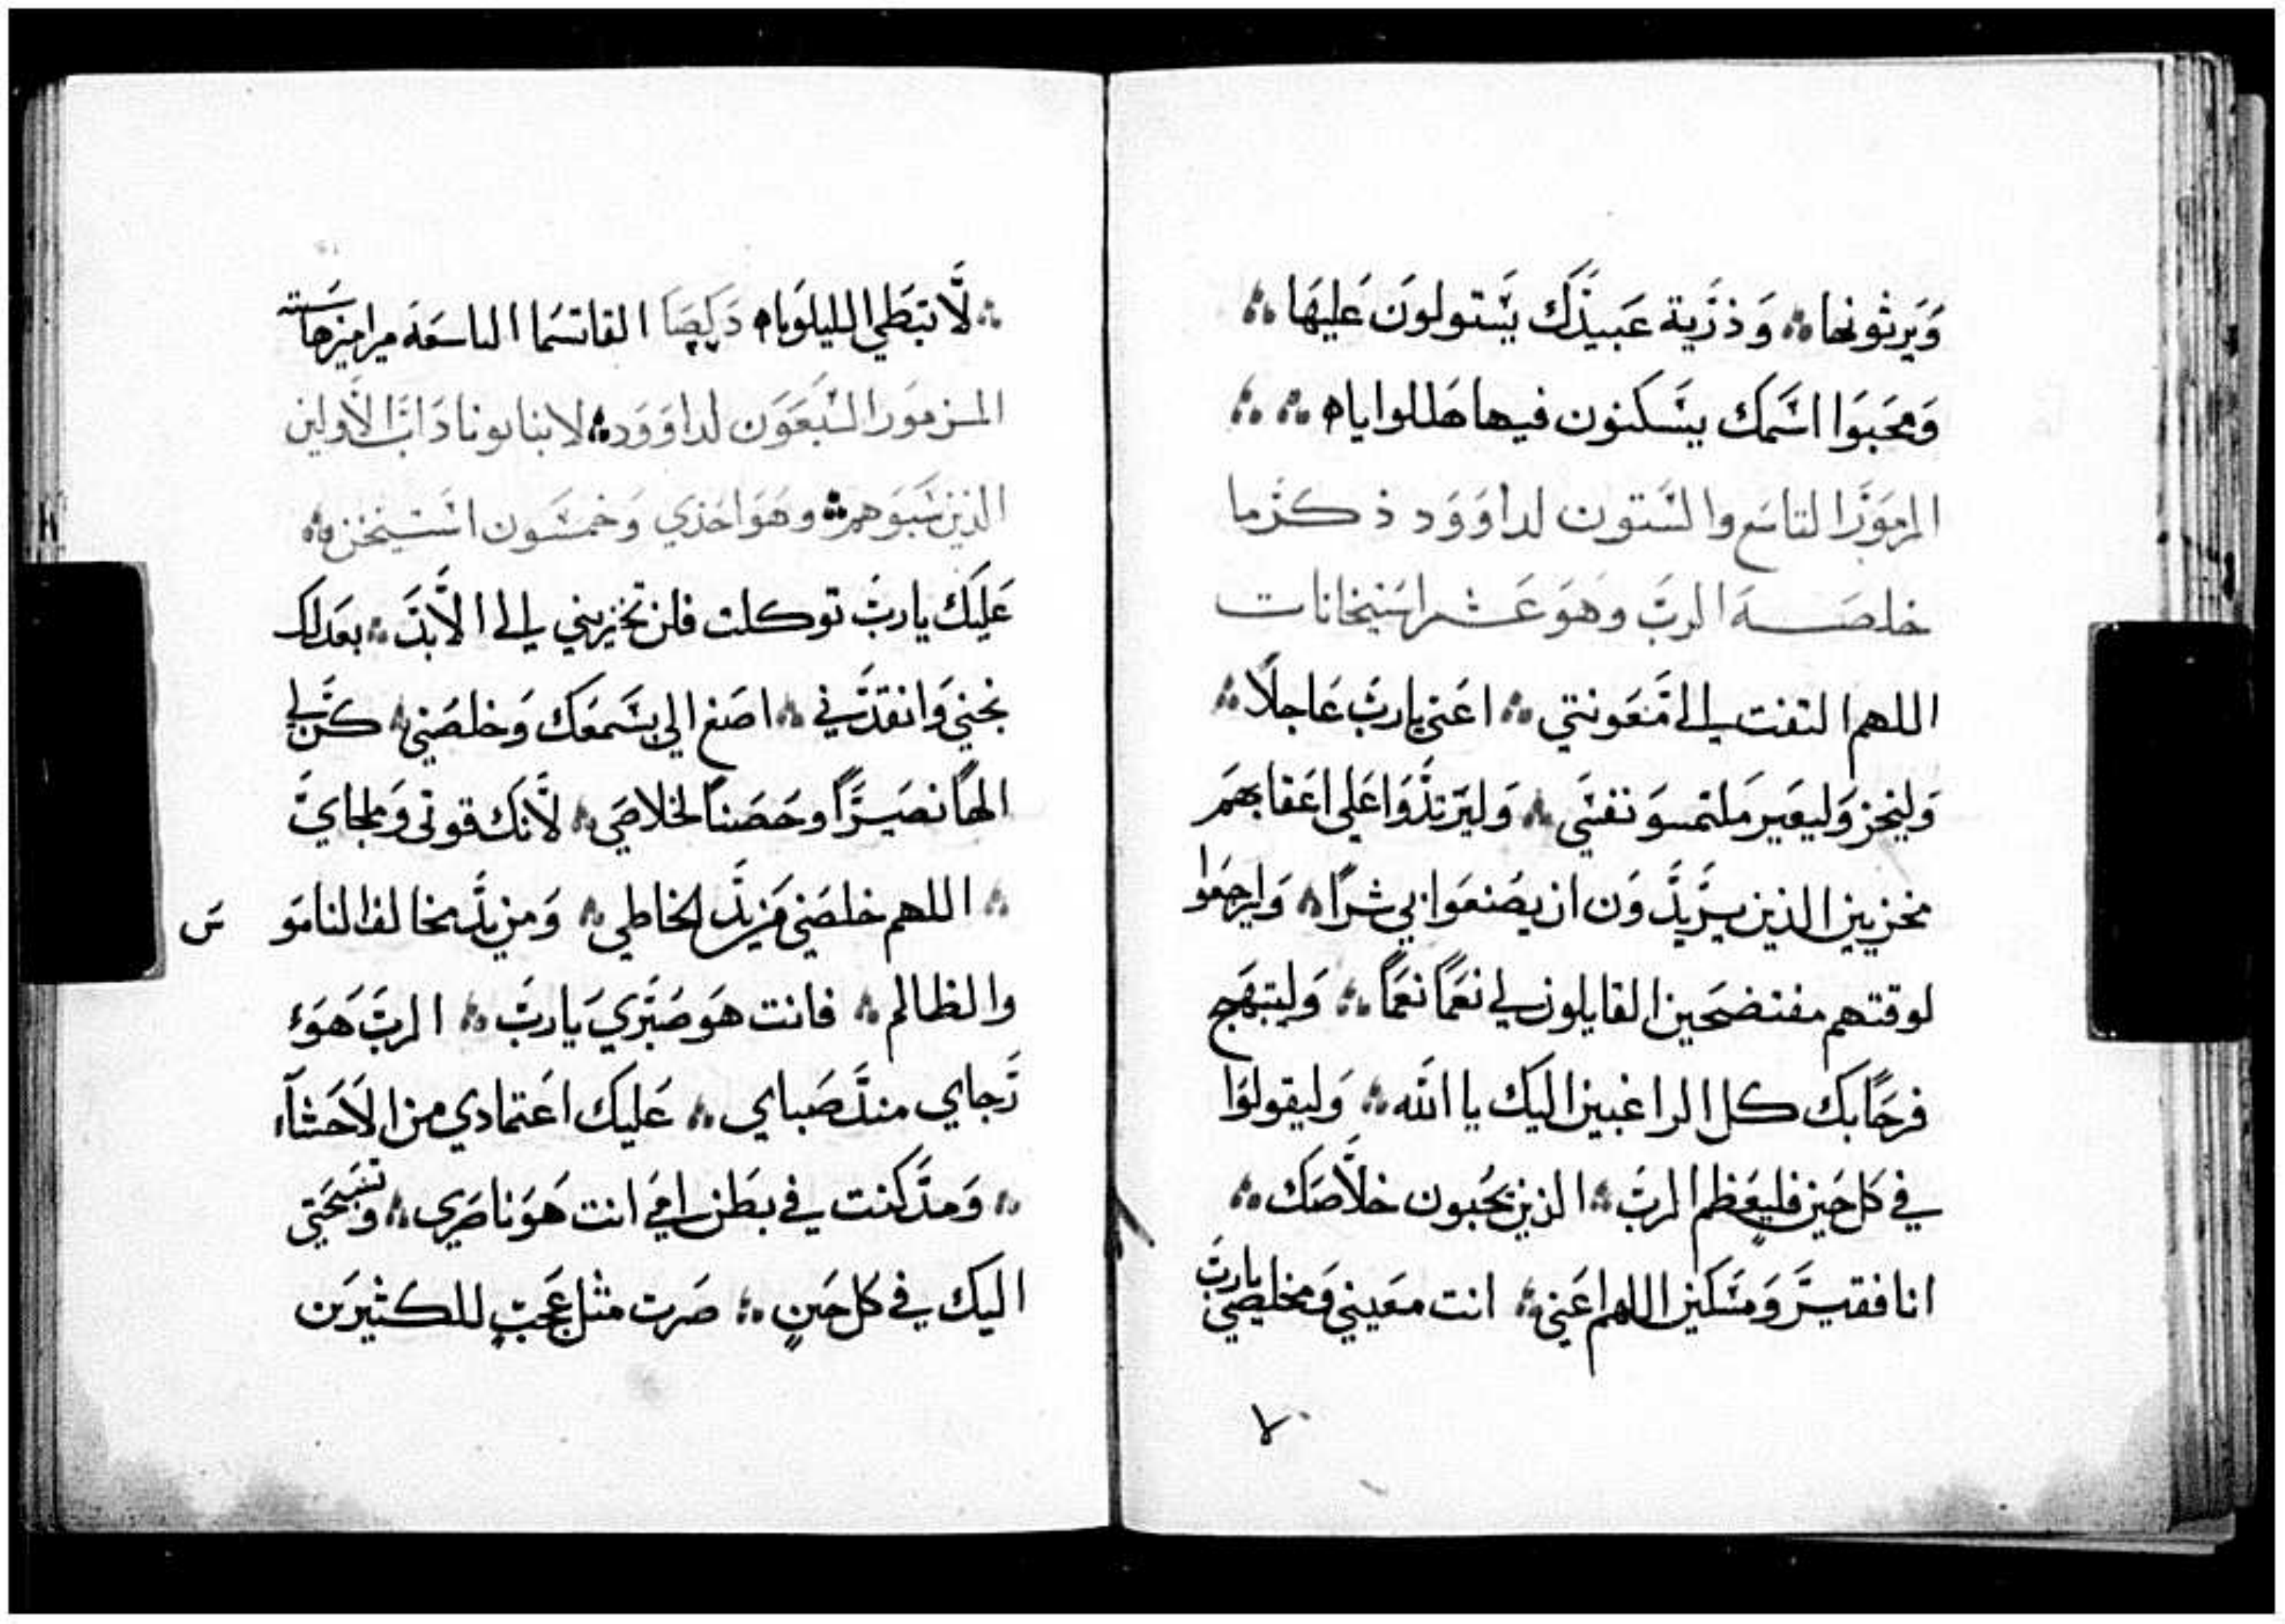 وَيَرثونها ⁘ وَذرَية عَبيدَك يَستولونَ عَليهَا ⁘
وَمحَبوَا اسَمك يسَكنون فيها هَللوا ياه ⁘ ⁘
المزمَورَ التاسَع والسَتون لداوَوَد ذكرَما
خلصَـــه الربَ وهوَ عَـــشر استيخانات
اللهم التفت الي مَعَونتي ⁘ اعَني يارب عَاجلاً ⁘
وَليخز وَليعَير ملتمسوَ نفسَي ⁘ وَليَرتدَوَا عَلي اعَقابهمَ
مخزيين الذين يرَيدَوَن ان يصَنعَوا بي شراً ⁘ وَليرجعَوا
لوقتهم مفتضحَين القايلون لي نعَماً نعَماً ⁘ وَليبتهَج
فرحَاً بك كل الراغبين اليك يا الله ⁘ وَليقولوَا
في كل حَين فليعَظم الربَ ⁘ الذين يحَبون خلاَصَك ⁘
انا فقيرَ وَمسَكين اللهم اعَني ⁘ انت معَيني وَمخلصَي يارب
لاَ تبَطي الليلوَياه دَكصَا القاتسَما التاسعَه مرامزها سَته
المزمَور السَبعَوَن لداوَوَد ⁘ لابنا يوناداب الاَولين
الذين سَبَوَهم ⁘ وهَوَ احَدي وَخمسَون استيخن ⁘
عَليَك ياربَ توكلت فلن تخزيني الي الاَبدَ ⁘ بعَدلك
نجني وَانقدَني ⁘ اصَغ الي بسَمعَك وَخلصَني ⁘ كن لي
الهاً نصَيرَاً وحَصَناً لخلاصَي ⁘ لاَنك قوتي وَملجاي
⁘ اللهم خلصَني من يدَ الخاطي ⁘ وَمن يدَ مخالف النامَو سَ
والظالم ⁘ فانت هوَ صَبرَي يَاربَ ⁘ الربَ هَوَ
رَجاي مندَ صَباي ⁘ عَليَك اعَتمادي من الاَحَشآء
⁘ وَمدَ كنت في بطَن امي انت هوَ ناصَري ⁘ وَتسَبحَتي
اليَك في كل حَين ⁘ صَرت مثل عَجَب للكثيرَين